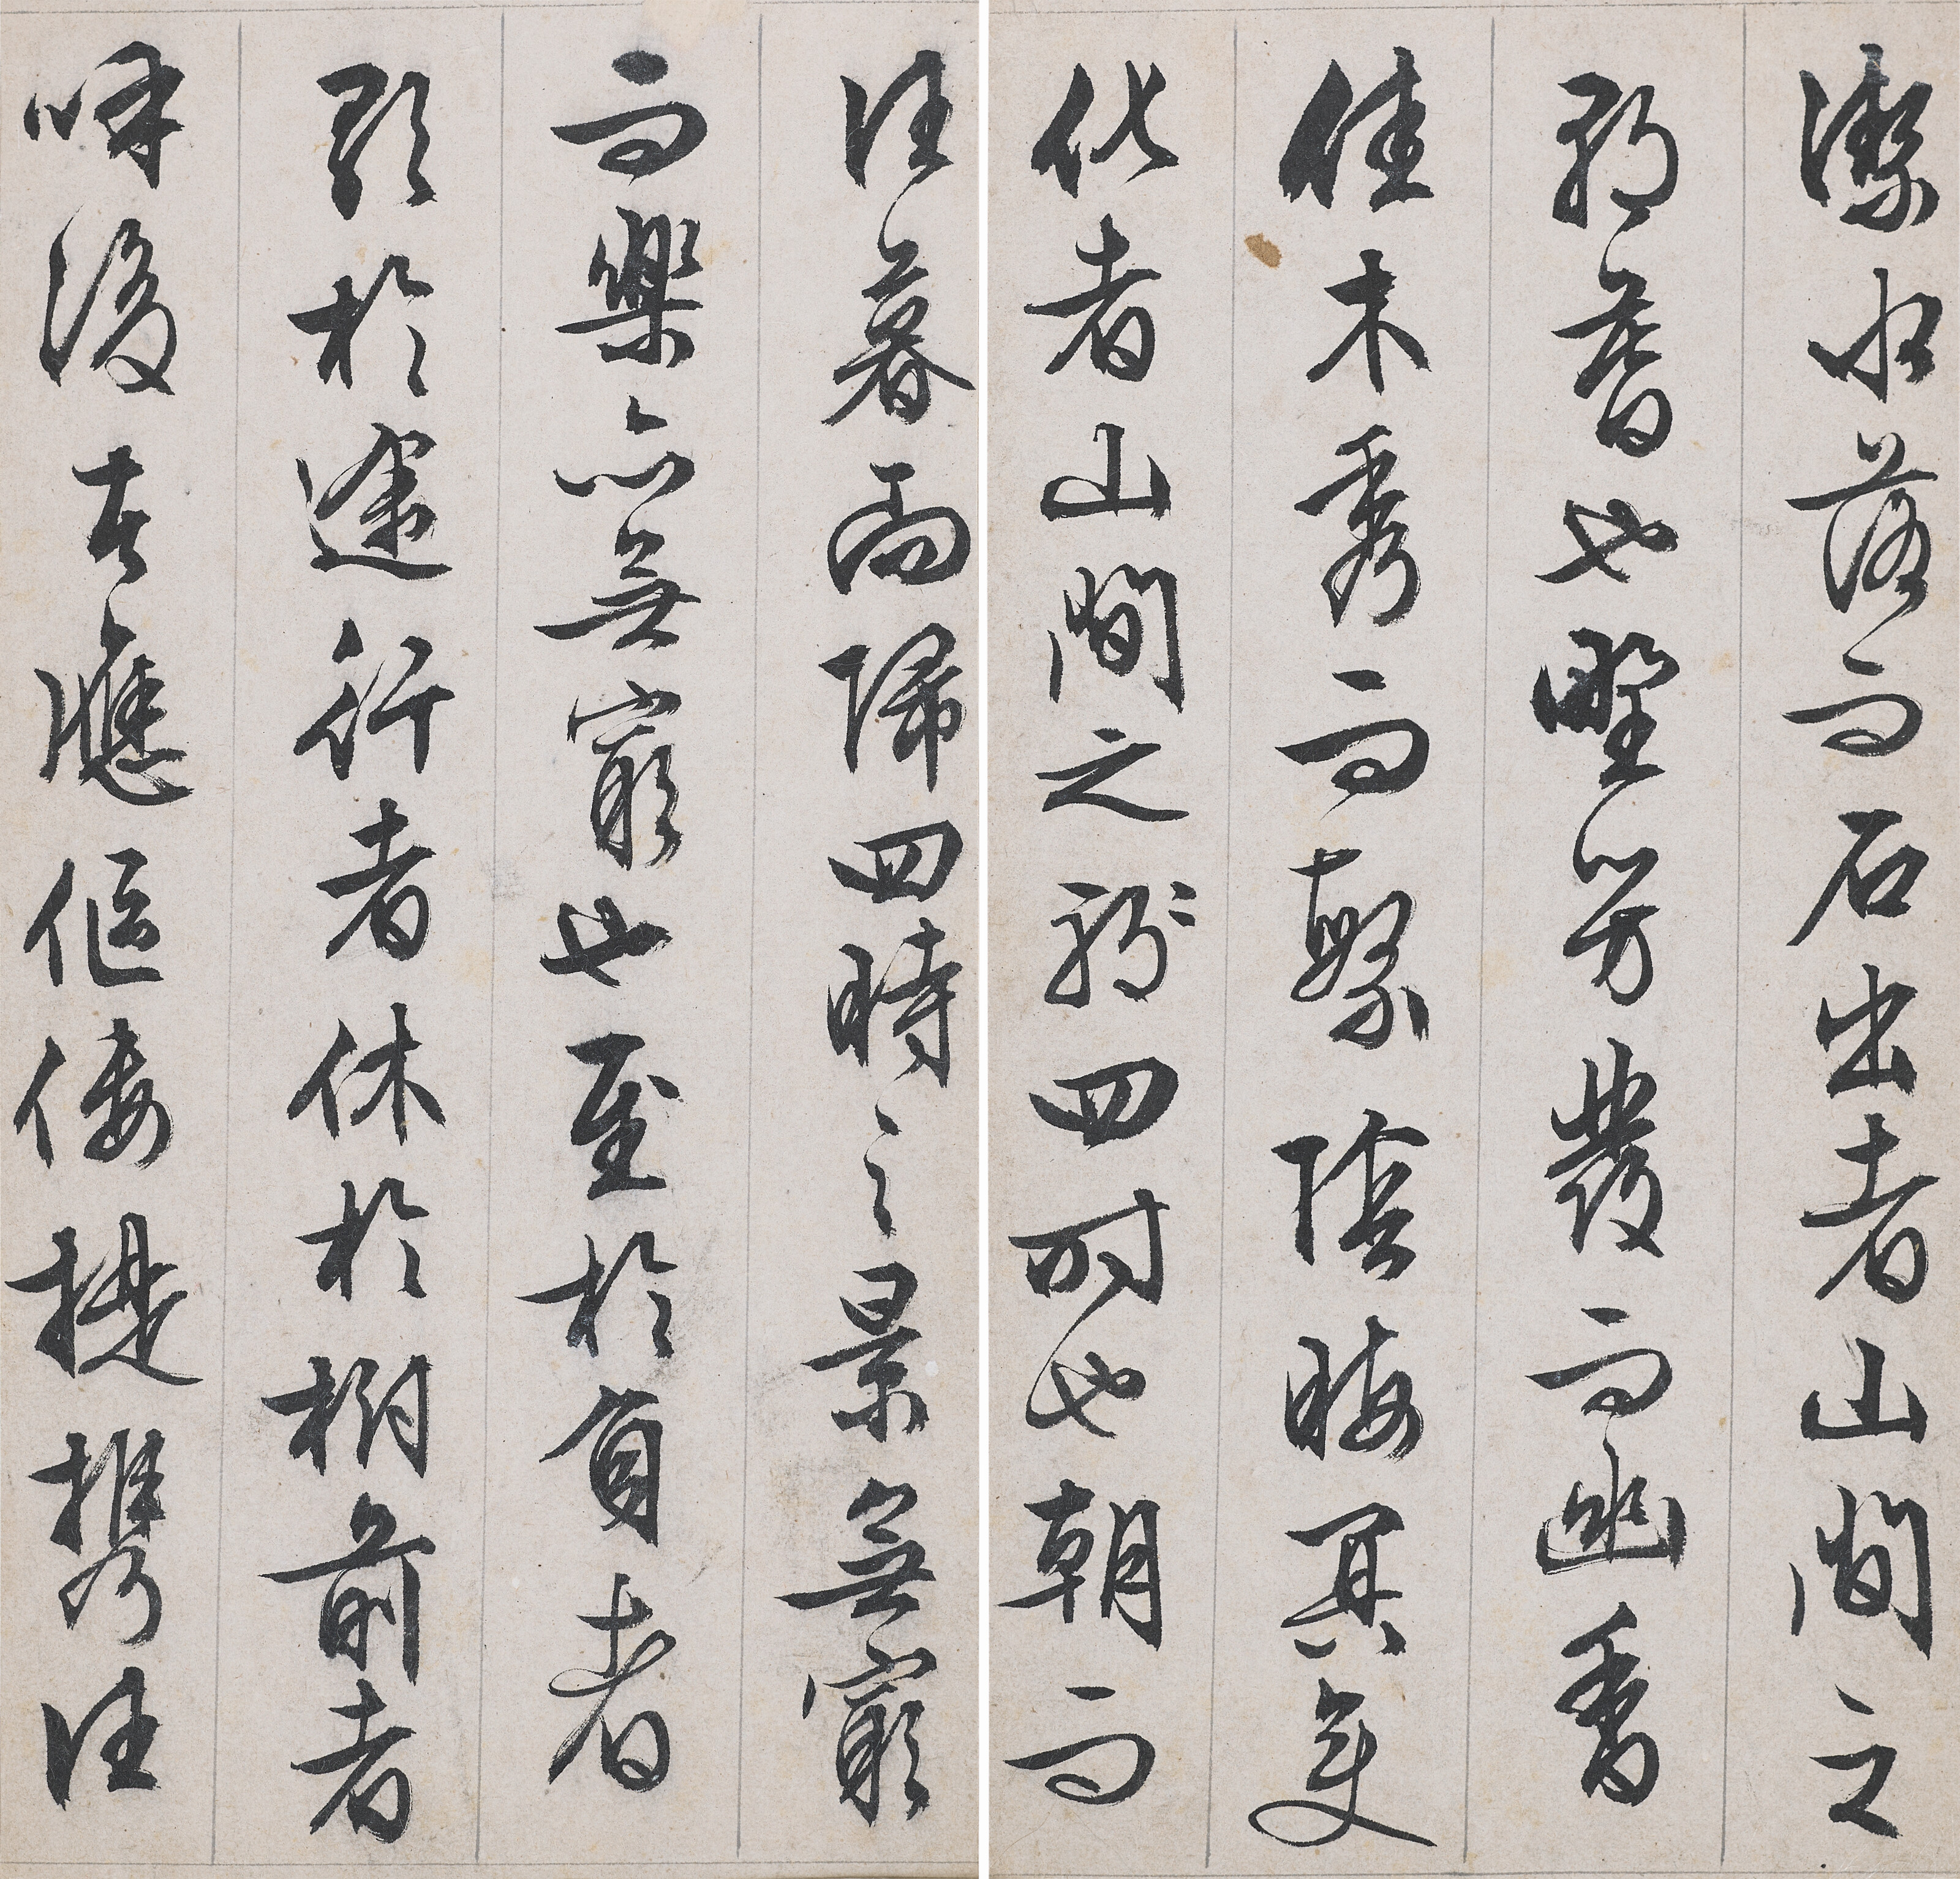 潔水落而石出者山間之
朝暮也野芳發而幽香
佳木秀而繁陰晦冥變
化者山間之朝四時也朝而
往暮而歸四時之景無窮
而樂亦無窮也至於負者
歌於途行者休於樹前者
呼後者應傴僂提携往